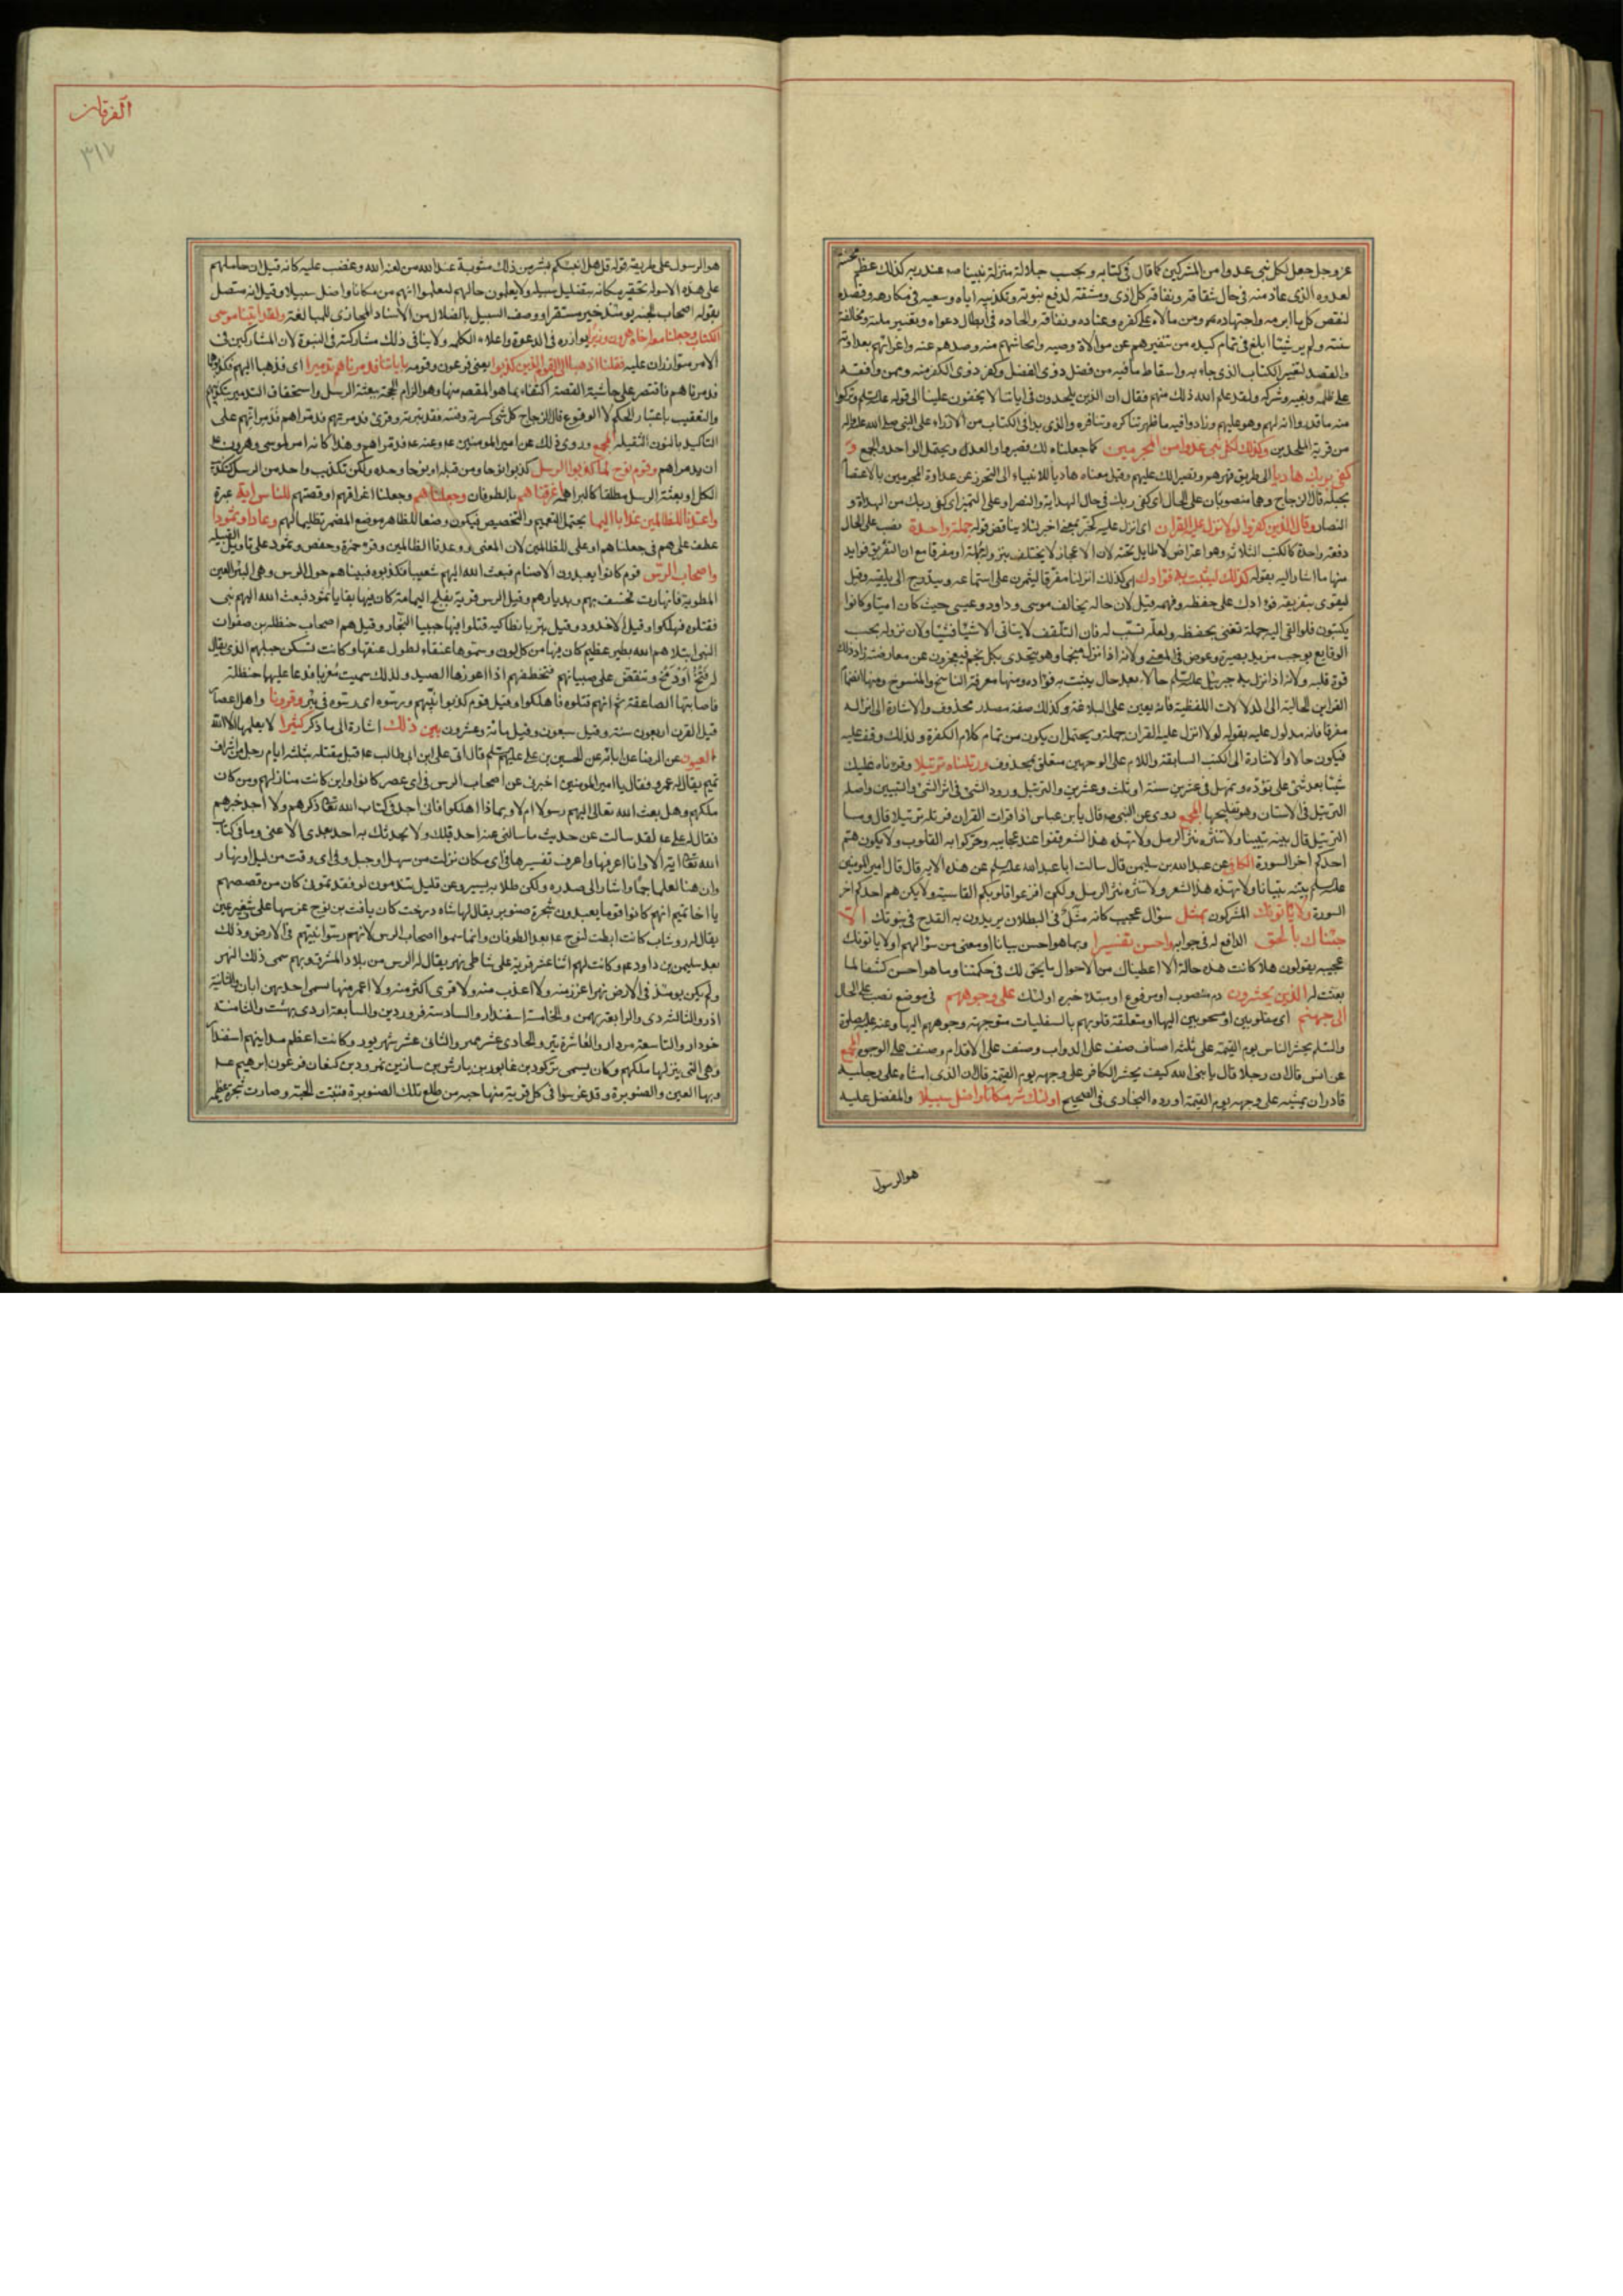 عز وجل جعل لكل نبى عدوا من المشركين كما قال فى كتابه وبحسب جلالة منزلة نبينا ص عند ربه كذلك عظم
لعدوه الذى عاد منه فى حال شقاقه ونفاقه كل اذى ومشقة لدفع نبوته وتكذيبه اياه وسعيه فى مكارهه وقصده
لنقض كل ما ابرمه واجتهاده ومن مالاه على كفره وعناده ونفاقه والحاده فى ابطال دعواه وتغيير ملته ومخالفة
سنته ولم ير شيئا ابلغ فى تمام كيده من تنفيرهم عن موالاة وصيه وايحاشهم منه وصدهم عنه واغرائهم بعداوته
والقصد لتغيير الكتاب الذى جاء به واسقاط ما فيه من فضل ذوى الفضل وكفر ذوى الكفر منه وممن وافقه
على ظلمه وبغيه وشركه ولقد علم الله ذلك منهم فقال ان الذين يلحدون فى اياتنا لا يخفون علينا الى قوله وتركوا
منه ما قدروا انه لهم وهو عليهم وزادوا فيه ما ظهر تناكره وتنافره والذى بدا فى الكتاب من الازراء على النبى صلى الله عليه واله
من فرية الملحدين وكذلك لكل نبى عدوا من المجرمين كما جعلناه لك فصبروا والعدو يحتمل الواحد والجمع و
كفى بربك هاديا الى طريق قهرهم ونصيرا لك عليهم وقيل معناه هاديا للانبياء الى التحرز عن عداوة المجرمين بالاعتصام
بحبله قال الزجاج وهما منصوبان على الحال اى كفى ربك فى حال الهداية والنصر او على التميز اى كفى ربك من الهداة و
النصار وقال الذين كفروا لولا نزل عليه القران اى انزل عليه كخبر بمعنى اخبر لئلا يناقض قوله جملة واحدة نصب على الحال
دفعة واحدة كالكتب الثلاثة وهو اعتراض لا طايل تحته لان الاعجاز لا يختلف بنزوله جملة او مفرقا مع ان التفريق فوايد
منها ما اشار اليه بقوله كذلك لنثبت به فؤادك اى كذلك انزلناه مفرقا ليتمرن على استماعه ويتدرج الى تلقيه وقيل
ليقوى بتفريقه فؤادك على حفظه وفهمه وقيل لان حاله يخالف موسى وداود وعيسى حيث كان اميا وكانوا
يكتبون فلو القى اليه جملة تعنى بحفظه ولعله تسبب له فان التلقف لا يتاتى الا شيئا فشيئا ولان نزوله بحسب
الوقايع يوجب مزيد بصيرة وغوص فى المعنى ولانه اذا نزل منجما وهو يتحدى بكل نجم فيعجزون عن معارضته زاد ذلك
قوة قلبه ولانه اذا نزل به جبرئيل حالا بعد حال يثبت به فؤاده ومنها معرفة الناسخ والمنسوخ ومنها انضمام
القراين الحالية الى الدلالات اللفظية فانه يعين على البلاغة وكذلك صفة مصدر محذوف والاشارة الى انزاله
مفرقا فانه مدلول عليه بقوله لولا انزل عليه القران جملة ويحتمل ان يكون من تمام كلام الكفرة ولذلك وقف عليه
فيكون حالا والاشارة الى الكتب السابقة واللام على الوجهين متعلق بمحذوف ورتلناه ترتيلا وقرءناه عليك
شيئا بعد شئ على تؤدة وتمهل فى عشرين سنة او ثلث وعشرين والترتيل ورود الشئ فى اثر الشئ والتبيين واصله
الترتيل فى الاسنان وهو تفليجها المجمع روى عن النبى ص قال يابن عباس اذا قرات القران فرتله ترتيلا قال وما
الترتيل قال بينه تبيينا ولا تنثره نثر الرمل ولا تهذه هذ الشعر قفوا عند عجايبه وحركوا به القلوب ولا يكون هم
احدكم اخر السورة الكافى عن عبد الله بن سليمن قال سالت ابا عبد الله عليه السلم عن هذه الاية قال قال امير المومنين
بينه تبيانا ولا تهذه هذ الشعر ولا تنثره نثر الرمل ولكن افزعوا قلوبكم القاسية ولا يكن هم احدكم اخر
السورة ولا ياتونك المشركون بمثل سؤال عجيب كانه مثل فى البطلان يريدون به القدح فى نبوتك الا
جئناك بالحق الدافع له فى جوابه واحسن تفسيرا وبما هو احسن بيانا او معنى من سؤالهم او لا ياتونك
عجيبه يقولون هلا كانت هذه حاله الا اعطيناك من الاحوال ما يحق لك فى حكمتنا وما هو احسن كشفا لما
بعثت له الذين يحشرون ذم منصوب او مرفوع او مبتدا خبره اولئك على وجوههم فى موضع نصب على الحال
الى جهنم اى مقلوبين او مسحوبين اليها او متعلقة قلوبهم بالسفليات متوجهة وجوههم اليها وعنه عليه الصلوة
والسلم يحشر الناس يوم القيمة على ثلثه اصناف صنف على الدواب وصنف على الاقدام وصنف على الوجوه المجمع
عن انس قال ان رجلا قال يا نبى الله كيف يحشر الكافر على وجهه يوم القيمة قال ان الذى امشاه على رجليه
قادر ان يمشيه على وجهه يوم القيمة اورده البخارى فى الصحيح اولئك شر مكانا واضل سبيلا والمفضل عليه
هو الرسول
الفرقان
٣١٧
هو الرسول على طريقة قوله قل هل انبئكم بشر من ذلك مثوبة عند الله من لعنه الله وغضب عليه كانه قيل ان حاملهم
على هذه الاسولة تحقير مكانه بتضليل سبيله ولا يعلمون حالهم ليعلموا انهم من مكانا واضل سبيلا وقيل انه متصل
بقوله اصحاب الجنة يومئذ خير مستقرا ووصف السبيل بالضلال من الاسناد المجازى للمبالغة ولقد اتينا موسى
الكتاب وجعلنا معه اخاه هرون وزيرا يوازره فى الدعوة واعلاء الكلمة ولا ينافى ذلك مشاركته فى النبوة لان المشاركين فى
الامر متوازران عليه فقلنا اذهبا الى القوم الذين كذبوا يعنى فرعون وقومه باياتنا فدمرناهم تدميرا اى فذهبا اليهم فكذبوهما
فدمرناهم فاقتصر على حاشيتى القصة اكتفاء بما هو المقصد منها وهو الزام الحجة ببعثة الرسل واستحقاق التدمير بتكذيبهم
والتعقيب باعتبار الحكم لا الوقوع قال الزجاج كل شئ كسرته وفتته فقد تبرته وقرئ فدمرتهم فدمراهم فدمرانهم على
التاكيد بالنون الثقيلة المجمع وروى ذلك عن امير المومنين ع وعنه ع فدمراهم وهذا كانه امر لموسى وهرون ع
ان يدمراهم وقوم نوح لما كذبوا الرسل كذبوا نوحا ومن قبله او نوحا وحده ولكن تكذيب واحد من الرسل كتكذيب
الكل او بعثة الرسل مطلقا كالبراهمة اغرقناهم بالطوفان وجعلناهم وجعلنا اغراقهم او قصتهم للناس اية عبرة
واعتدنا للظالمين عذابا اليما يحتمل التعميم والتخصيص فيكون وضعا للظاهر موضع المضمر تظليما لهم وعادا وثمودا
عطف على هم فى جعلناهم او على للظالمين لان المعنى ووعدنا الظالمين وقرء حمزة وحفص وثمود على تاويل القبيلة
واصحاب الرس قوم كانوا يعبدون الاصنام فبعث الله اليهم شعيبا فكذبوه فبيناهم حول الرس وهى البئر الغير
المطوية فانهارت فخسف بهم وبديارهم وقيل الرس قرية بفلج اليمامة كان فيها بقايا ثمود فبعث الله اليهم نبى
فقتلوه فهلكوا وقيل الاخدود وقيل بئر بانطاكيه قتلوا فيها حبيبا النجار وقيل هم اصحاب حنظلة بن صفوان
النبى ابتلاهم الله بطير عظيم كان فيها من كل لون وسموها عنقاء لطول عنقها وكانت تسكن جبلهم الذى يقال
له فتخ او دمخ وتنقض على صبيانهم فتخطفهم اذا اعوزها الصيد ولذلك سميت مغربا فدعا عليها حنظلة
فاصابتها الصاعقة ثم انهم قتلوه فاهلكوا وقيل قوم كذبوا نبيهم ورسوه اى دسوه فى بئر وقرونا واهل اعصار
قيل القرن اربعون سنة وقيل سبعون وقيل مائة وعشرون بين ذلك اشارة الى ما ذكر كثيرا لا يعلمها الا الله
العيون عن الرضا عن ابائه عن الحسين بن على عليهم السلم قال اتى على ابن ابى طالب ع قبل مقتله بثلثه ايام رجل من اشراف
تميم يقال له عمرو فقال يا امير المومنين اخبرنى عن اصحاب الرس فى اى عصر كانوا واين كانت منازلهم ومن كان
ملكهم وهل بعث الله تعالى اليهم رسولا ام لا وبماذا اهلكوا فانى اجد فى كتاب الله تعالى ذكرهم ولا اجد خبرهم
فقال له على ع لقد سالت عن حديث ما سالنى عنه احد قبلك ولا يحدثك به احد بعدى الا عنى وما فى كتاب
الله تعالى اية الا وانا اعرفها واعرف تفسيرها فى اى مكان نزلت من سهل او جبل وفى اى وقت من ليل او نهار
وان هنا لعلما جما واشار الى صدره ولكن طلابه يسير وعن قليل تندمون لو فقدتمونى كان من قصصهم
يا اخا تميم انهم كانوا قوما يعبدون شجرة صنوبر يقال لها شاه درخت كان يافث بن نوح غرسها على شفير عين
يقال له روشاب كانت انبطت لنوح ع بعد الطوفان وانما سموا اصحاب الرس لانهم رسوا نبيهم فى الارض وذلك
بعد سليمن بن داود ع وكانت لهم اثنا عشر قرية على شاطى نهر يقال له الرس من بلاد المشرق وبهم سمى ذلك النهر
ولم يكن يومئذ فى الارض نهر اغزر منه ولا اعذب منه ولا قرى اكثر منه ولا اعمر منها سمى احديهن ابان والثانية
اذر والثالثه دى والرابعة بهمن والخامسة اسفندار والسادسة فروردين والسابعة اردى بهشت والثامنة
خودار والتاسعة مرداد والعاشرة تير والحادى عشر مهر والثانى عشر شهريور وكانت اعظم مداينهم اسفندار
وهى التى ينزلها ملكهم وكان يسمى تركوذ بن غابور بن يارش بن سازن بن نمرود بن كنعان فرعون ابرهيم ع
وبها العين والصنوبرة وقد غرسوا فى كل قرية منها حبه من طلع تلك الصنوبرة فنبتت الحبة وصارت شجرة عظيمة